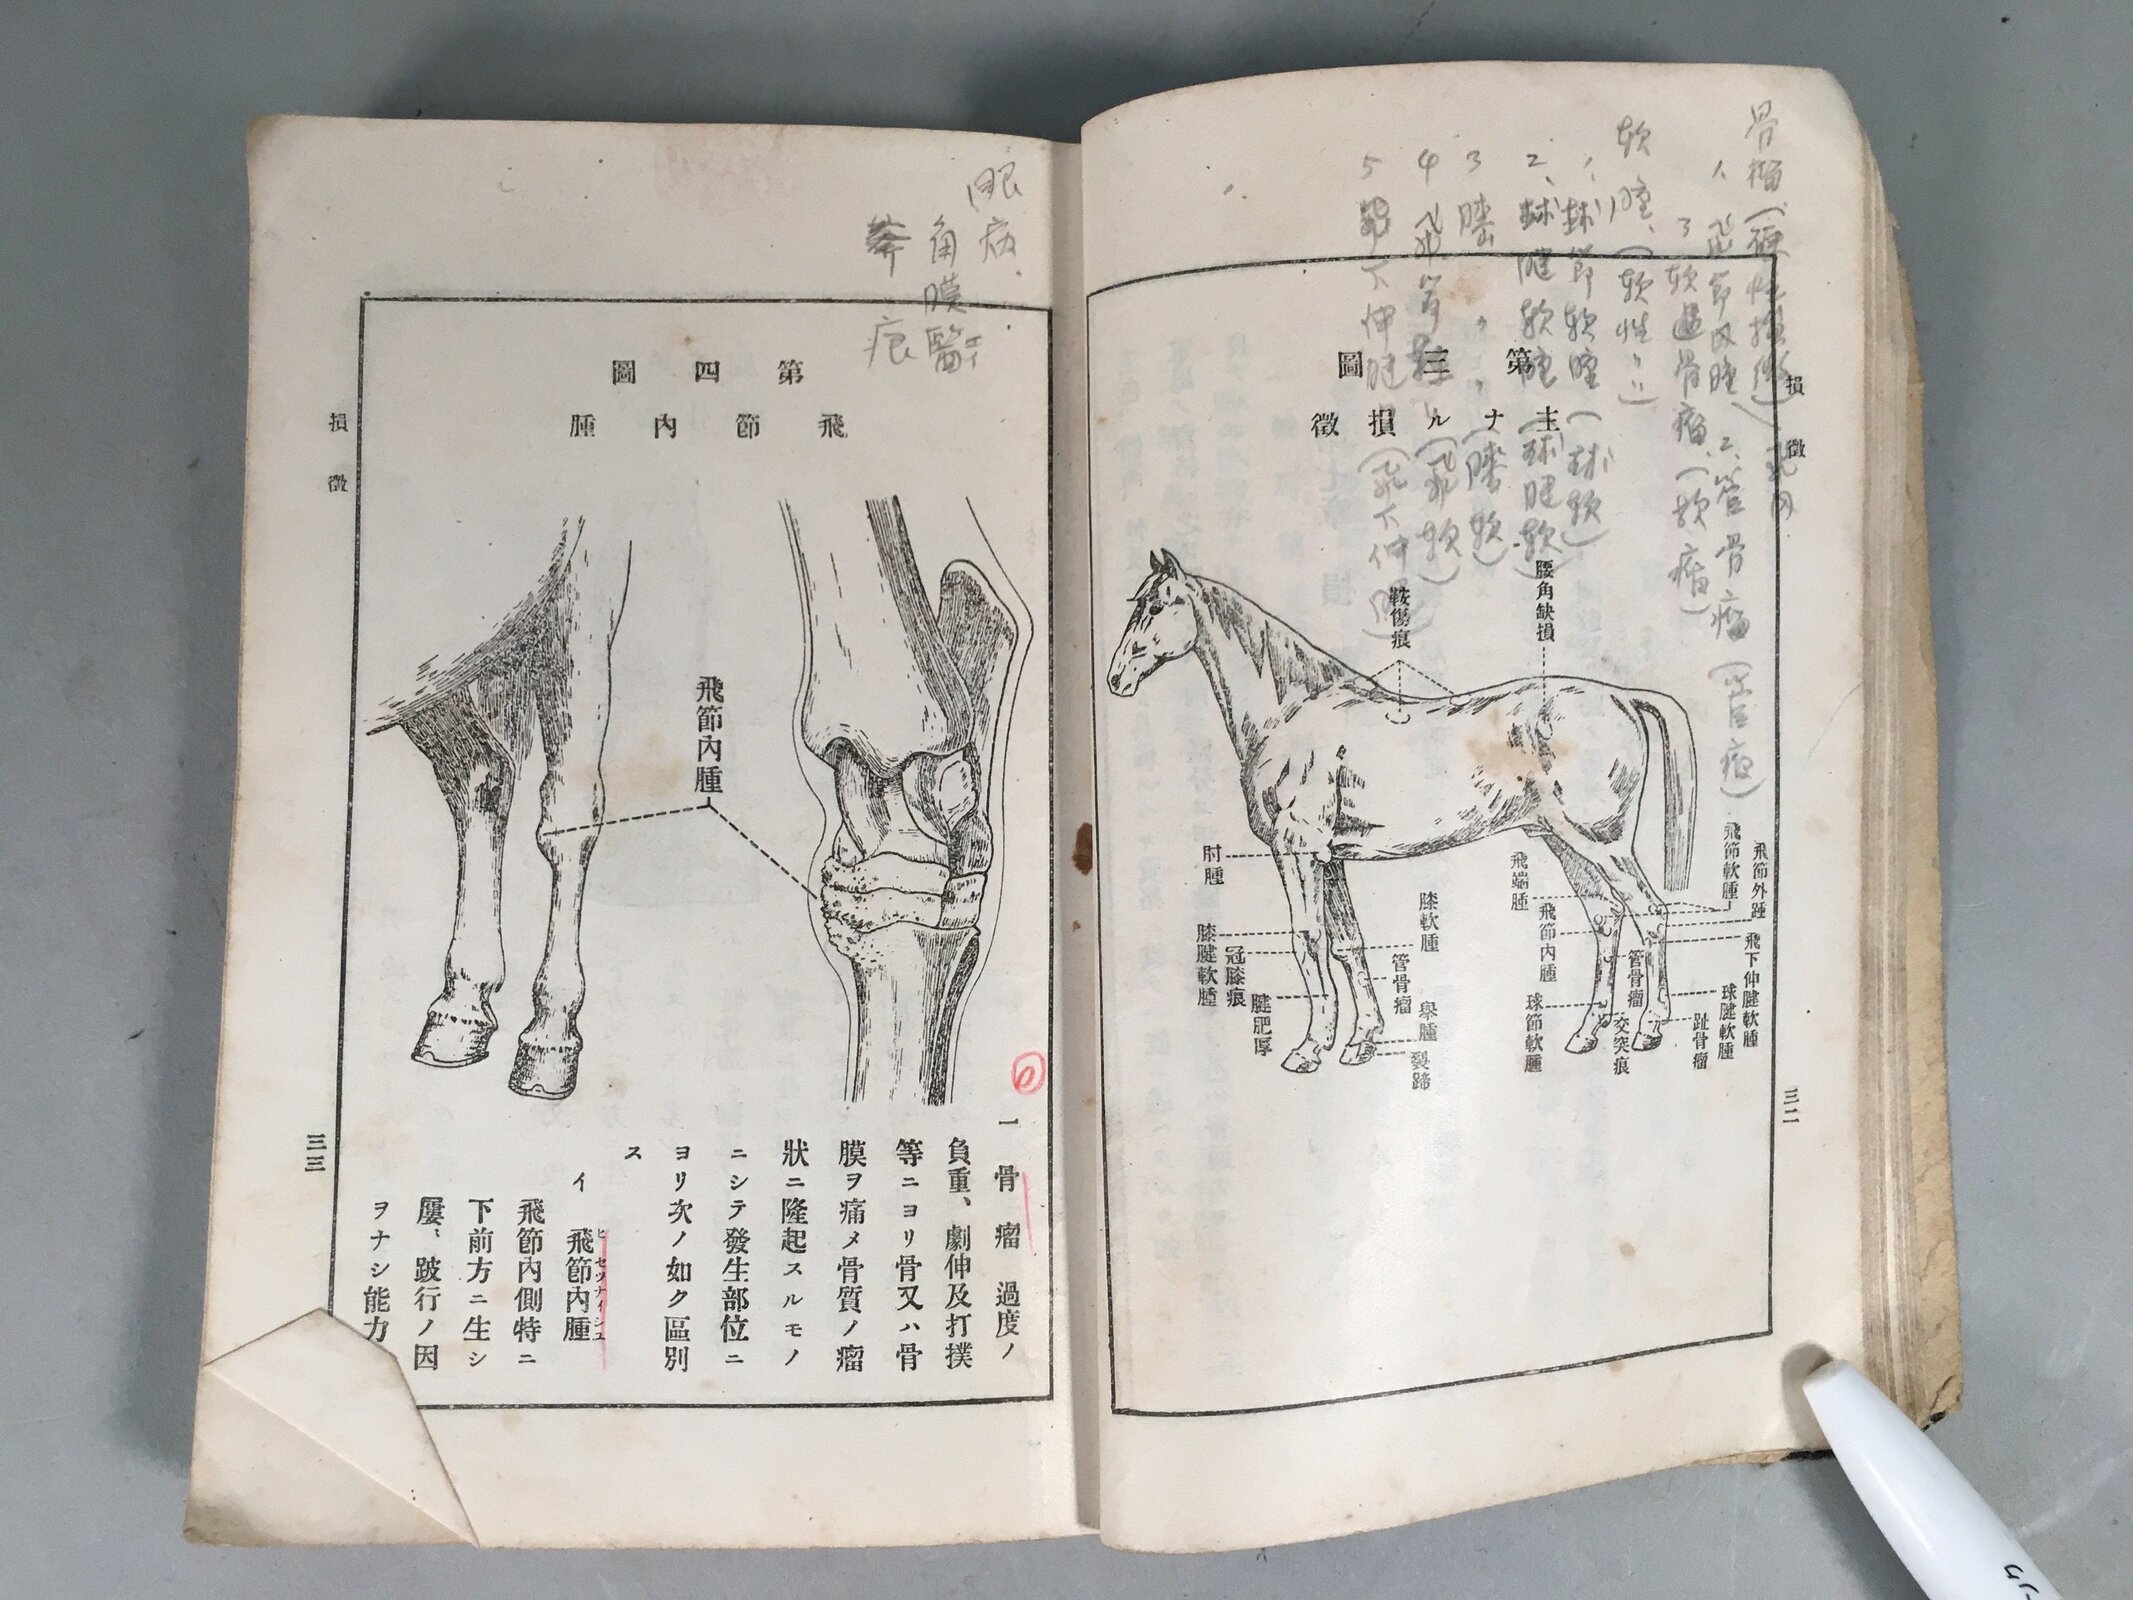 損徵
三二
第三圖
主ナル損徵
腰角缺損
鞍傷痕
飛節外踵
飛節軟腫
飛下伸腱軟腫
球腱軟腫
趾骨瘤
管骨瘤
交突痕
飛節內腫
飛端腫
球節軟腫
膝軟腫
管骨瘤
舉腫
裂蹄
肘腫
膝腱軟腫
冠膝痕
腱肥厚
軟腫
1、球節軟腫(球軟)
2、球腱軟腫(球腱軟)
3 膝〃〃(膝軟)
眼病
角膜翳エイ
痕
第四圖
飛節內腫
飛節內腫
一 骨瘤 過度ノ
負重、劇伸及打撲
等ニヨリ骨又ハ骨
膜ヲ痛メ骨質ノ瘤
狀ニ隆起スルモノ
ニシテ發生部位ニ
ヨリ次ノ如ク區別
ス
イ 飛節內腫
ヒセツナイシユ
飛節內側特ニ
下前方ニ生シ
屢〻跛行ノ因
ヲナシ能力
損徵
三三